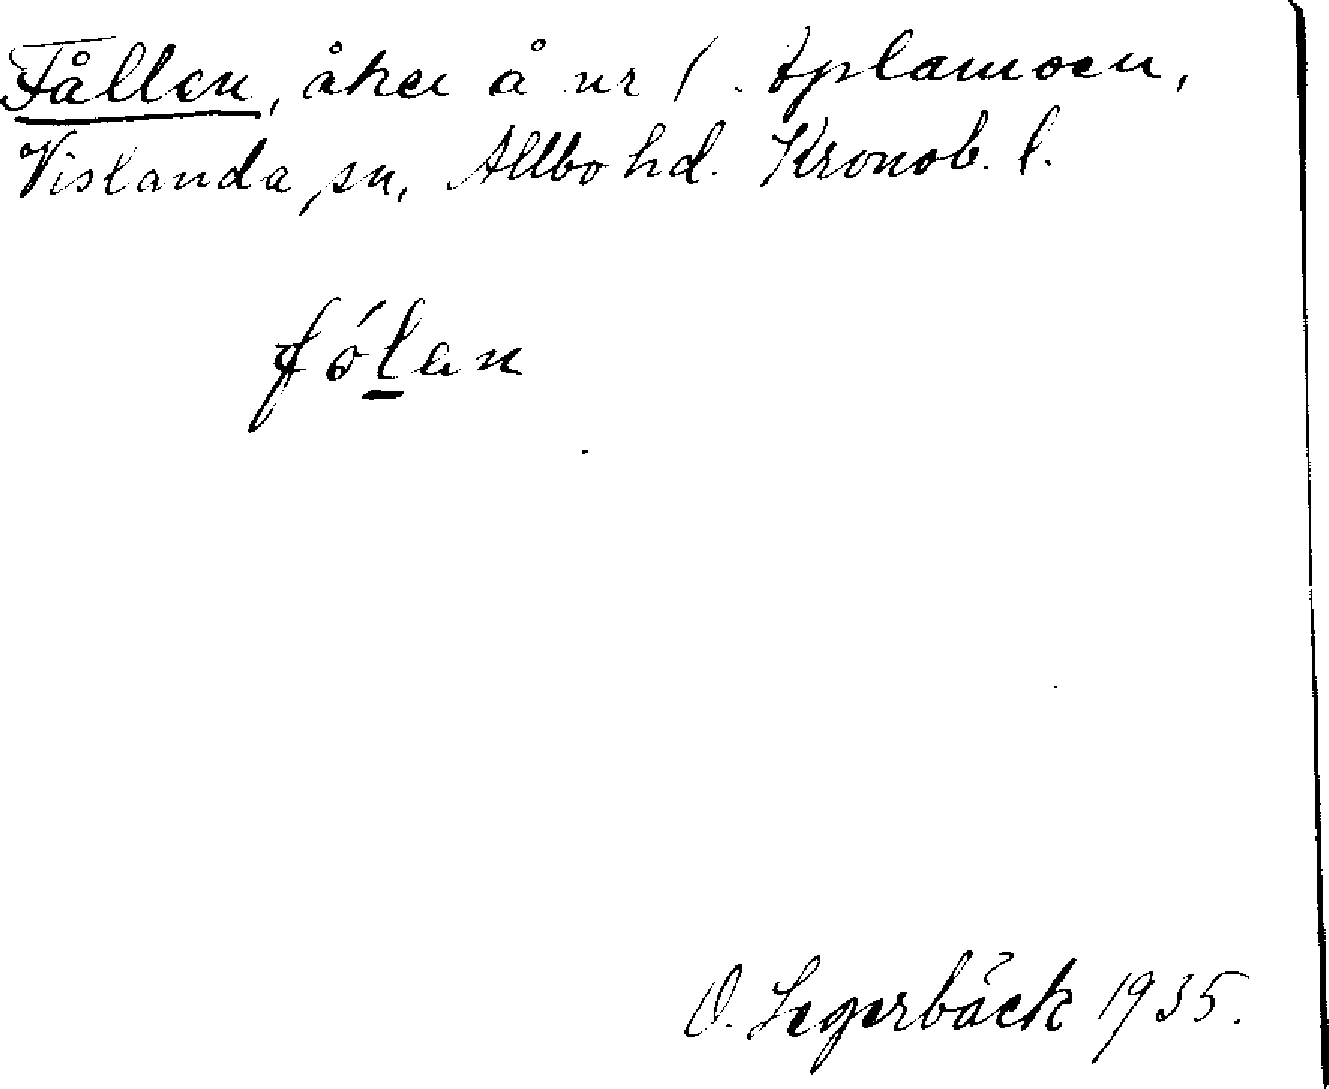 Fållen, åker å nr 1. Aplamoen,
Vislanda sn, Allbo hd. Kronob. l.
fólen
O. Segerbäck 1935.